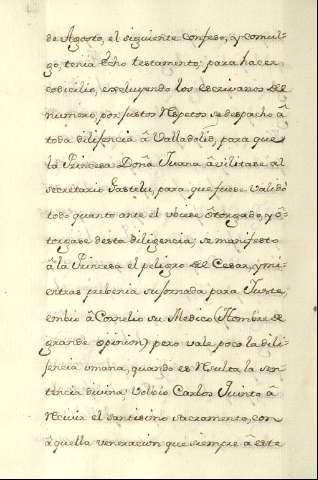 de Agosto, el siguiente confeso, y comul-
go, tenia ẽho testamento; para hacer
codicilio, escluyendo los escrivanos del
numero, por justos Respetos se despacho â
toda dilijencia â Valladolid, para que
la Princesa Doña Juana âvilitase al
secretario Gastelu, para que fuese valido
todo quanto ante el ubiese ôtorgado, y ô-
torgase desta diligencia; se manifesto
â la Princesa el peligro del Cesar, y mi-
entras prebenia su jornada para Juste,
embio â Cornelio su Medico (Hombre de
grande opinion) pero vale poco la dili-
jencia umana, quando es Resulta la sen-
tencia divina; Volvio Carlos Quinto â
Recivir el santissimo sacramento, con
âquella veneracion que siempre â este